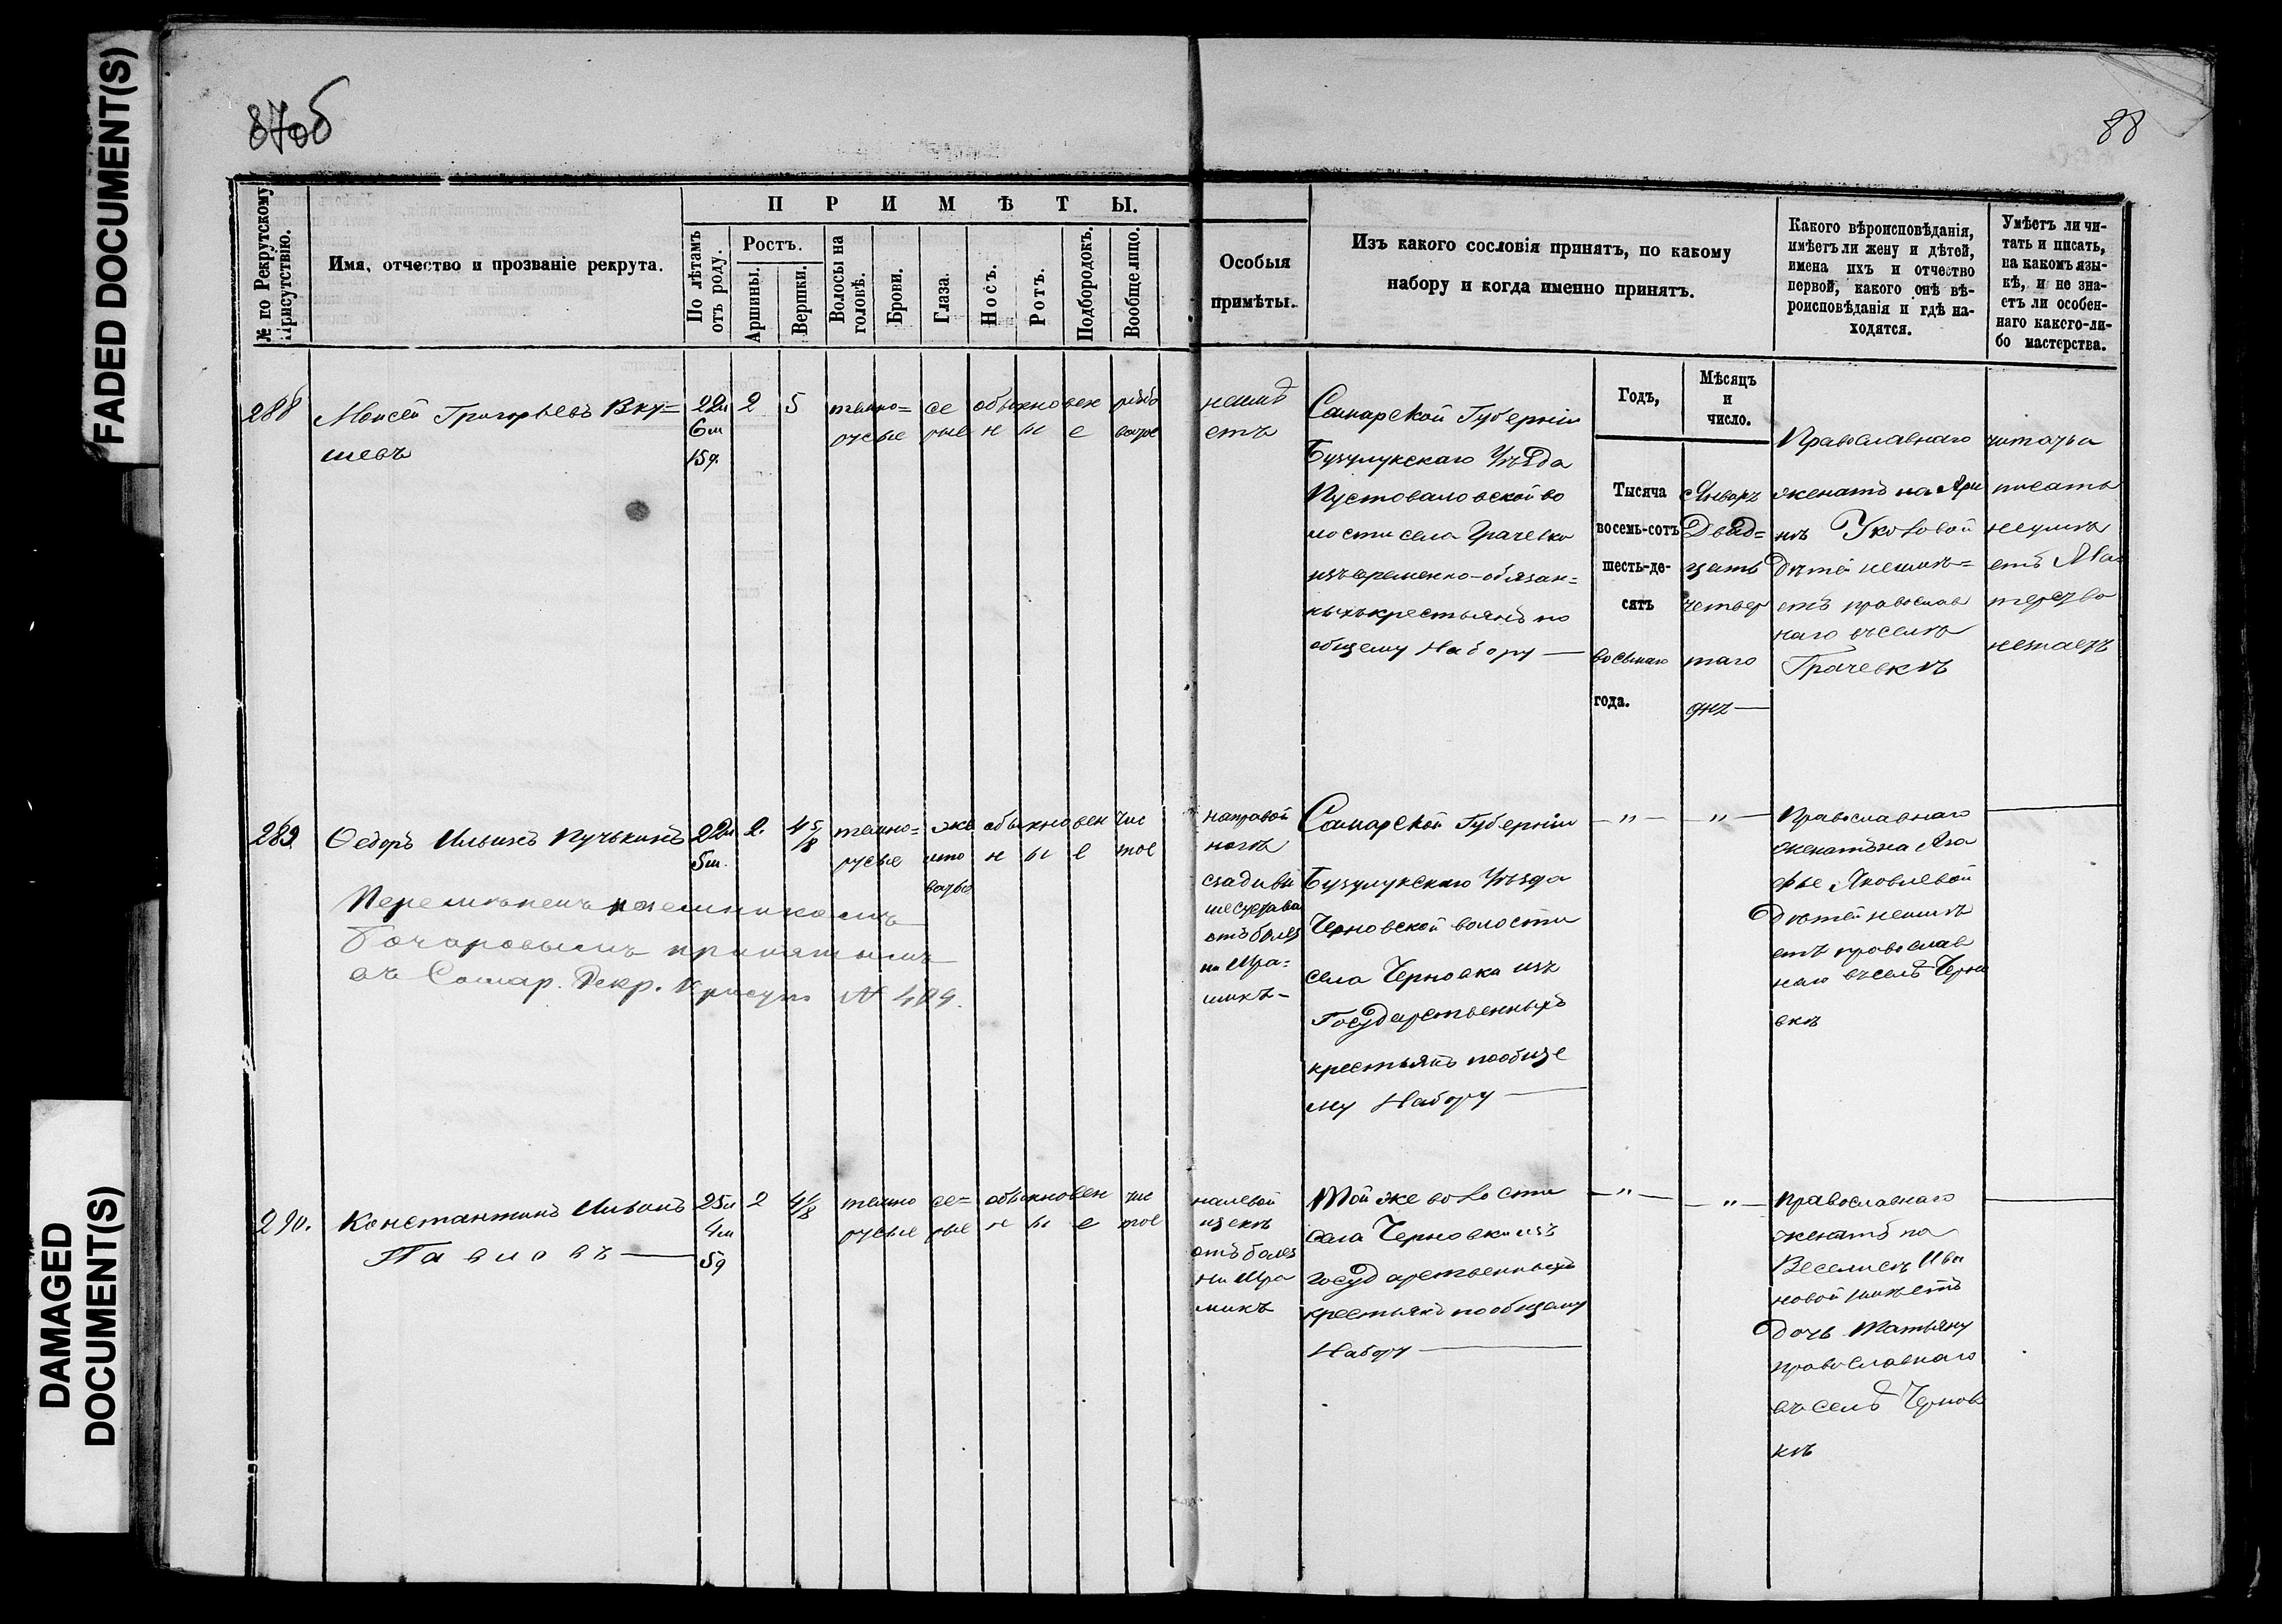 FADED DOCUMENT(S)
DAMAGED
DOCUMENT(S)
87об
88
№ по Рекрутскому
присутствію.
Имя, отчество и прозваніе рекрута.
ПРИМѢТЫ.
По лѣтамъ
отъ роду.
Ростъ.
Аршины.
Вершки.
Волосы на
головѣ.
Брови.
Глаза.
Носъ.
Ротъ.
Подбородокъ.
Вообще лицо.
Особыя
примѣты.
Изъ какого сословія принятъ, по какому
набору и когда именно принятъ.
Какого вѣроисповѣданія,
имѣетъ ли жену и дѣтей,
имена ихъ и отчество
первой, какого онѣ вѣ-
роисповѣданія и гдѣ на-
ходятся.
Умѣетъ ли чи-
тать и писать,
на какомъ язы-
кѣ, и не зна-
етъ ли особен-
наго какого-ли-
бо мастерства.
Годъ,
Мѣсяцъ
и
число.
288
Моисей Григорьевъ Вку=
шевъ
22л
6м
15д.
2
5
темно=
русые
се
рые
обыкновен
н ы е
рябо
ватое
неимѣ
етъ
Самарской Губерніи
Бузулукскаго Уѣзда
Пустоваловской во
лости села Грачевки
изъ временно-обязан=
ныхъ крестьянъ по
общему Набору —
Тысяча
восемь-сотъ
шесть-де-
сятъ
восьмаго
года.
Январь
Двад=
цать
четвер
таго
дня —
Православнаго
женатъ на Ари
нѣ
Дѣтей неимѣ=
етъ православ
наго въ селѣ
Грачевкѣ
читать и
писать
неумѣ
етъ Мас
терства
незнаетъ
289
Ѳедоръ Ильинъ Пучькинъ
Перемѣненъ наемникомъ
Бочаровымъ принятымъ
въ Самар. Рекр. Присут. № 404.
22л
5м.
2.
4 5/8
темно=
русые
же
лто
ватые
обыкновен
н ы е
чис
тое
направой
ногѣ
сзади
отъ болез
ни
Самарской Губерніи
Бузулукскаго Уѣзда
Черновской волости
села Черновки изъ
Государственныхъ
крестьянъ пообще
му Набору —
— „ —
— „ —
Православнаго
женатъ на Ага
фье Яковлевой
Дѣтей неимѣ
етъ православ
наго въ селѣ Черно
вкѣ
290.
Константинъ Ивановъ
Павловъ —
25л
4м
5д
2
4 1/8
темно
русые
се=
рые
обыкновен
н ы е
чис
тое
налевой
щекѣ
отъ болез
ни
Той же волости
села Черновки изъ
государственныхъ
крестьянъ пообщему
Набору —
— „ —
— „ —
православнаго
женатъ на
Ива
новой имѣетъ
дочь Татьяну
православнаго
въ селѣ Чернов
кѣ